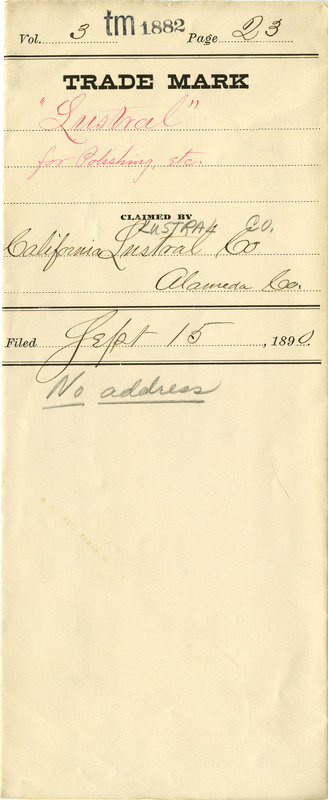 Vol. 3 tm 1882 Page 23
TRADE MARK
"Lustral"
for Polishing, etc.
CLAIMED BY
LUSTRAL CO.
California Lustral Co
Alameda Co.
Filed Sept 15, 1890.
No address